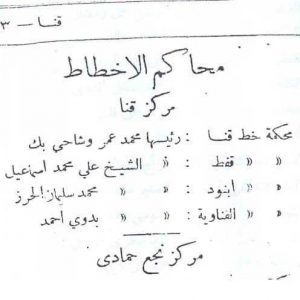 قنا — ٣
محاكم الاخطاط
مركز قنا
محكمة خط قنا : رئيسها محمد عمر وشاحي بك
» » قفط : » الشيخ علي محمد اسماعيل
» » ابنود : » » محمد سليمان الحرز
» » الفناوية : » » بدوي احمد
مركز نجع حمادى